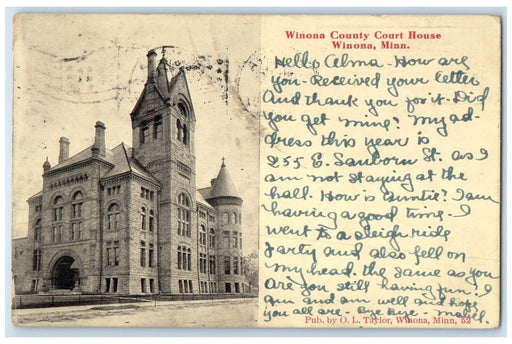 Winona County Court House
Winona, Minn.
Hello Alma - How are
you - Received your letter
and thank you for it. Did
you get mine? My ad-
dress this year is
255 E. Sanborn St. as I
am not staying at the
hall. How is auntie? I am
having a good time - I
went to a sleigh ride
party and also fell on
my head. the same as you
Are you still having fun. I
am and am well and hope
you all are - Bye Bye -
Pub. by O. L. Taylor, Winona, Minn. 52